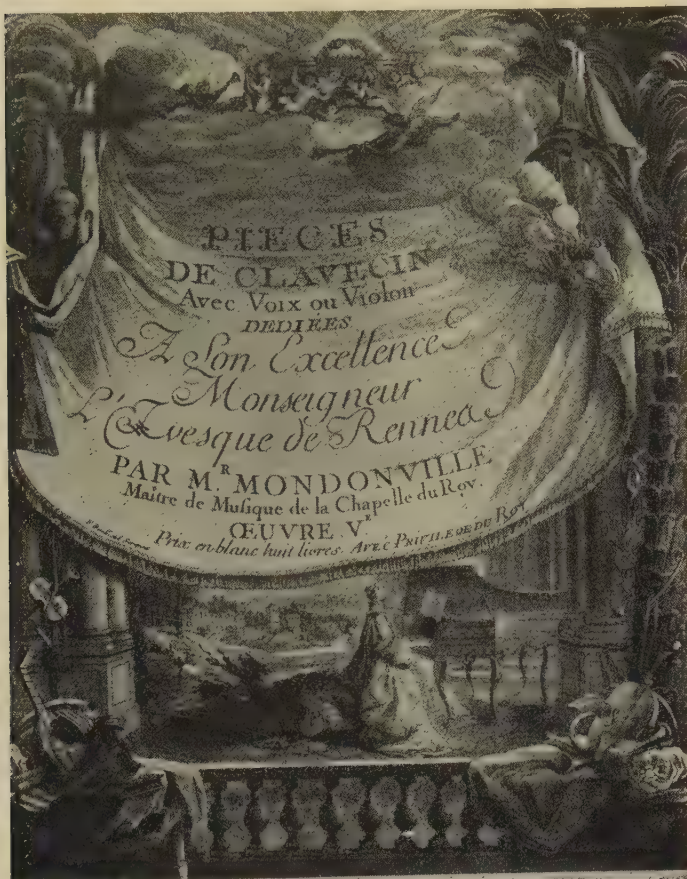 PIECES
DE CLAVECIN
Avec Voix ou Violon
DEDIÉES
A Son Excellence
Monseigneur
L'Evesque de Rennes
PAR M.R MONDONVILLE
Maitre de Musique de la Chapelle du Roy.
ŒUVRE V.E
Prix en blanc huit livres. AVEC PRIVILEGE DU ROY